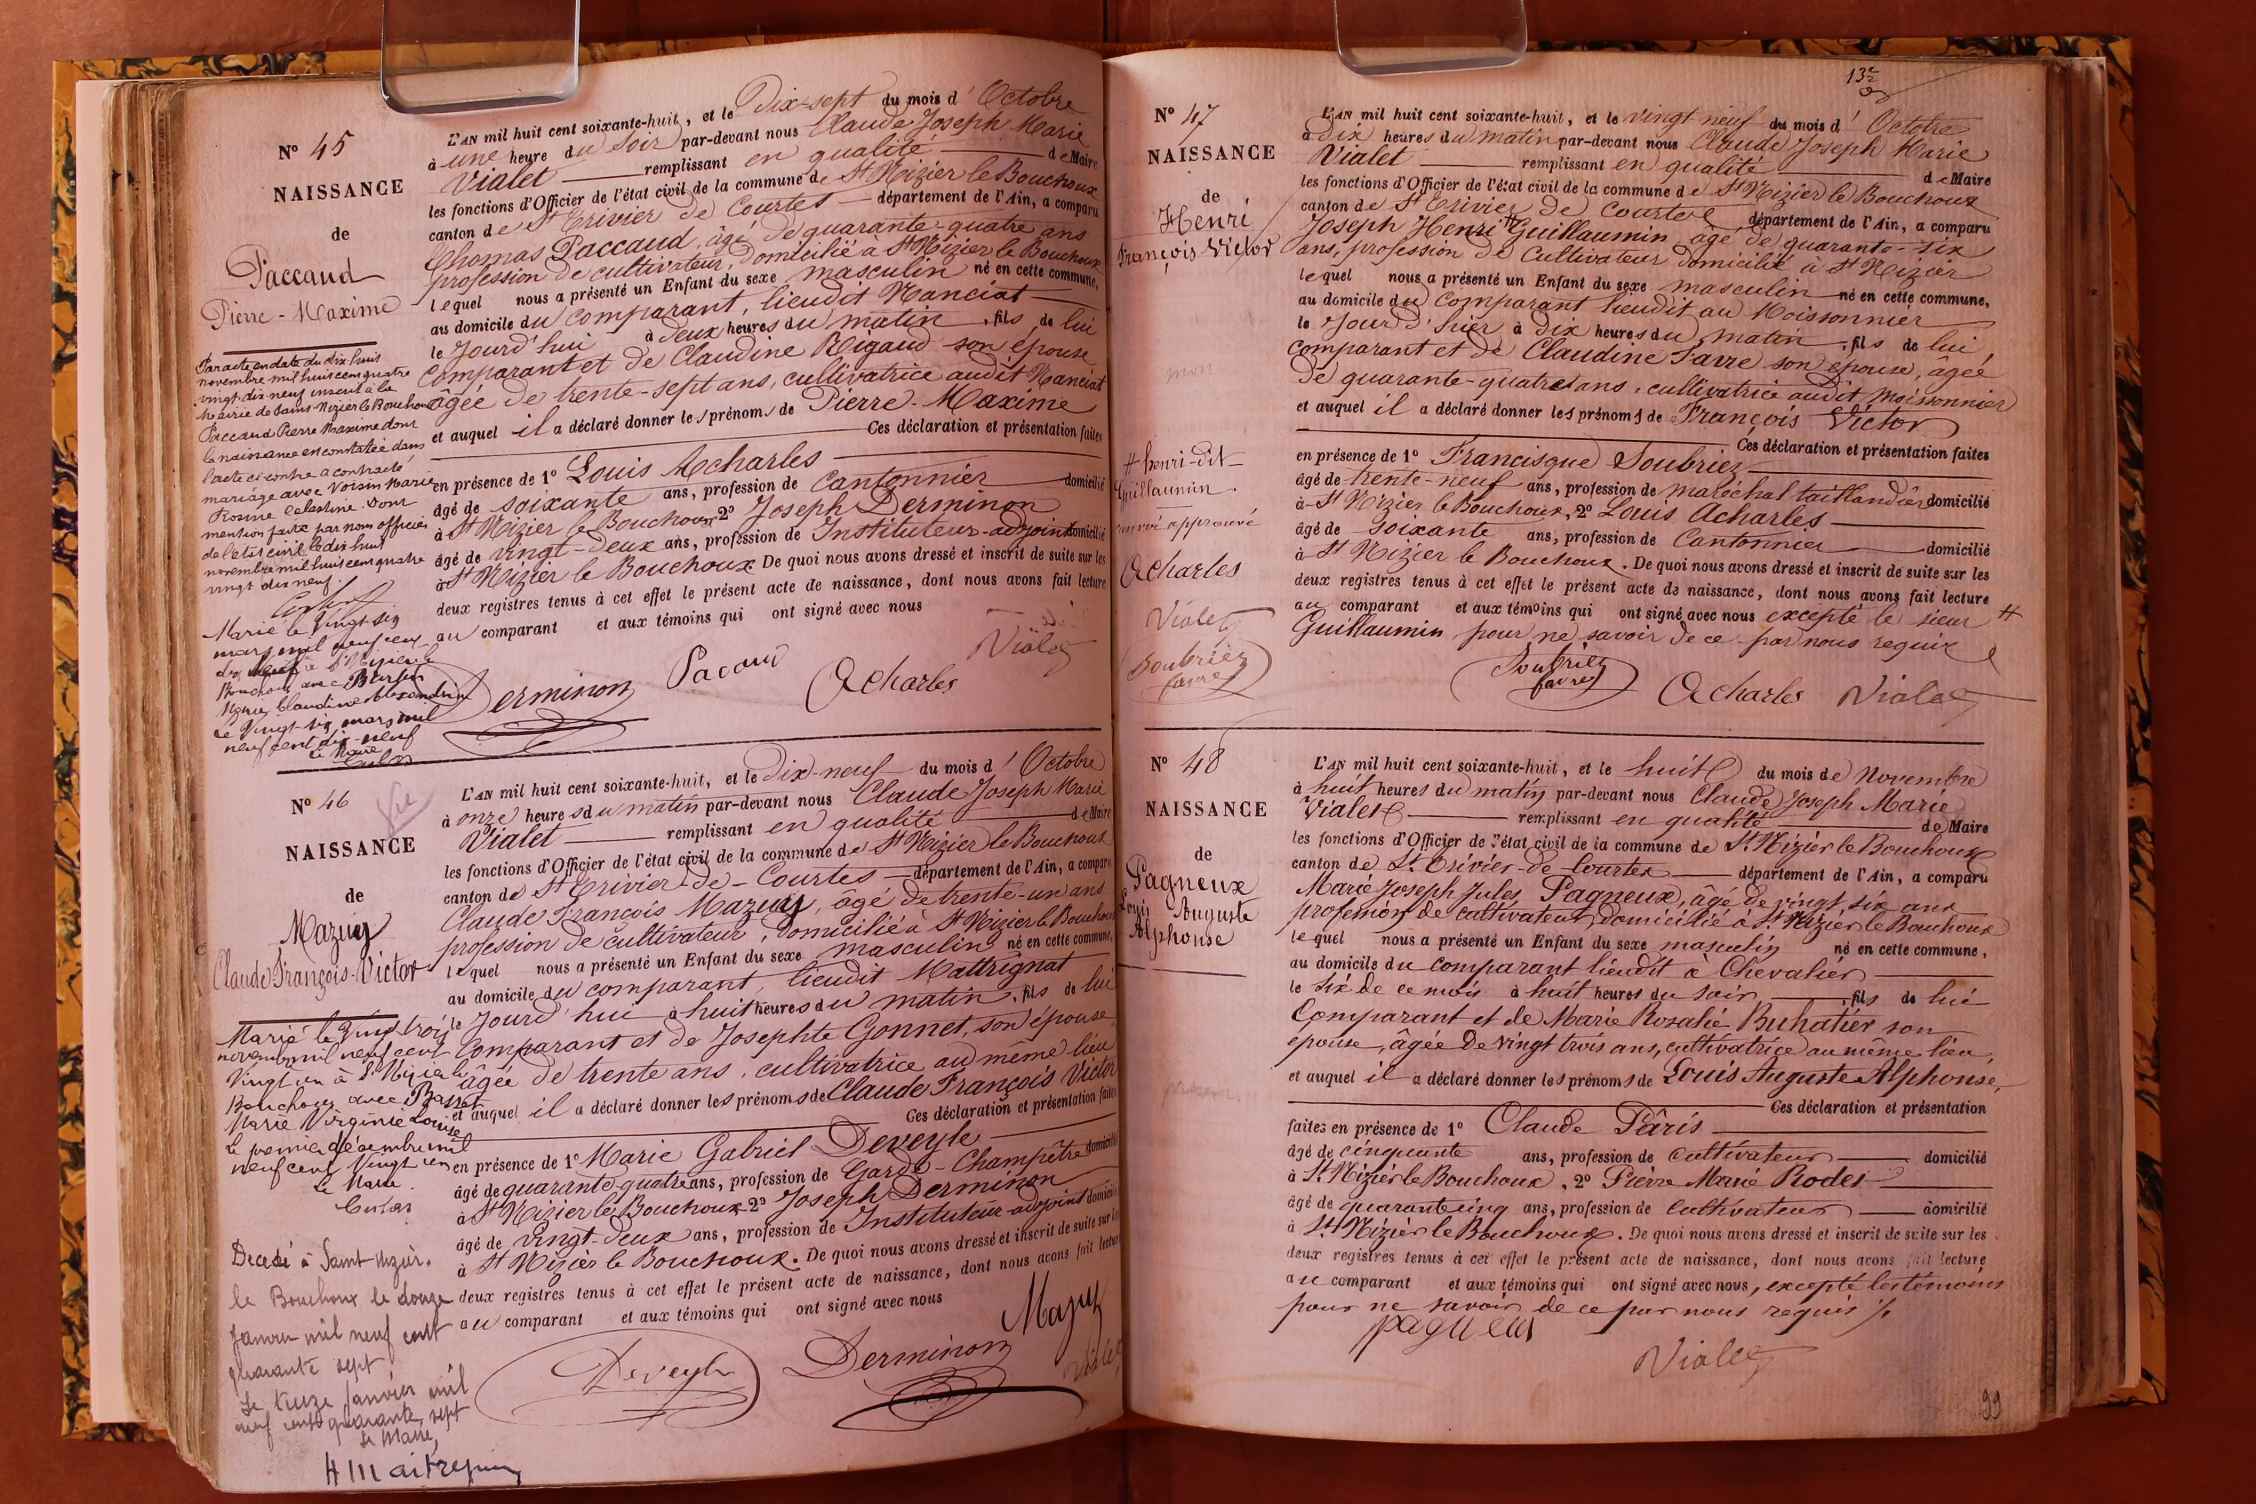 N° 45
NAISSANCE
de
Paccaud
Pierre-Maxime
Par acte en date du dix huit
novembre mil huit cent quatre
vingt dix neuf inscrit à la
Mairie de Saint-Nizier le Bouchoux
Paccaud Pierre Maxime dont
la naissance est constatée dans
l'acte ci contre a contracté
mariage avec Voisin Marie
Rosine Célestine. Dont
mention faite par nous officier
de l'état civil le dix huit
novembre mil huit cent quatre
vingt dix neuf.
Marié le vingt six
mars mil neuf cent
dix neuf à St Nizier le
Bouchoux avec
Marie Claudine Alexandrine
Le Vingt-six mars mil
neuf cent dix-neuf
Le Maire
L'AN mil huit cent soixante-huit, et le Dix-sept du mois d' Octobre
à une heure du soir par-devant nous Claude Joseph Marie
Vialet remplissant en qualité de Maire
les fonctions d'Officier de l'état civil de la commune de St Nizier le Bouchoux
canton de St Trivier de Courtes département de l'Ain, a comparu
Thomas Paccaud, âgé de quarante-quatre ans
profession de cultivateur, domicilié à St Nizier le Bouchoux
lequel nous a présenté un Enfant du sexe masculin né en cette commune,
au domicile du comparant, lieudit Manciat
le Jourd'hui à deux heures du matin, fils de lui
Comparant et de Claudine Rigaud son épouse
âgée de trente-sept ans, cultivatrice audit Manciat
et auquel il a déclaré donner les prénoms de Pierre-Maxime
Ces déclaration et présentation faites
en présence de 1° Louis Acharles
âgé de soixante ans, profession de Cantonnier domicilié
à St Nizier le Bouchoux 2° Joseph Derminon
âgé de vingt-deux ans, profession de Instituteur-adjoint domicilié
à St Nizier le Bouchoux. De quoi nous avons dressé et inscrit de suite sur les
deux registres tenus à cet effet le présent acte de naissance, dont nous avons fait lecture
au comparant et aux témoins qui ont signé avec nous
Derminon Pacaud Acharles Vialet
N° 46
NAISSANCE
de
Mazuy
Claude François-Victor
Marié le Vingt trois
novembre mil neuf cent
Vingt un à St Nizier le
Bouchoux avec Basset
Marie Virginie Louise
Le premier décembre mil
neuf cent Vingt un
Le Maire.
Decédé à Saint-Nizier.
le Bouchoux le douze
Janvier mil neuf cent
quarante sept
Le treize Janvier mil
neuf cent quarante sept
Le Maire,
L'AN mil huit cent soixante-huit, et le Dix-neuf du mois d' Octobre
à onze heures du matin par-devant nous Claude Joseph Marie
Vialet remplissant en qualité de Maire
les fonctions d'Officier de l'état civil de la commune de St Nizier le Bouchoux
canton de St Trivier-de-Courtes département de l'Ain, a comparu
Claude François Mazuy, âgé de trente-un ans
profession de cultivateur, domicilié à St Nizier le Bouchoux
lequel nous a présenté un Enfant du sexe masculin né en cette commune,
au domicile du comparant, lieudit Mattrignat
le Jourd'hui à huit heures du matin, fils de lui
Comparant et de Josephte Gonnet, son épouse
âgée de trente ans, cultivatrice au même lieu
et auquel il a déclaré donner les prénoms de Claude François Victor
Ces déclaration et présentation faites
en présence de 1° Marie Gabriel Deveyle
âgé de quarante-quatre ans, profession de Garde-Champêtre domicilié
à St Nizier le Bouchoux 2° Joseph Derminon
âgé de vingt-deux ans, profession de Instituteur-adjoint domicilié
à St Nizier le Bouchoux. De quoi nous avons dressé et inscrit de suite sur les
deux registres tenus à cet effet le présent acte de naissance, dont nous avons fait lecture
au comparant et aux témoins qui ont signé avec nous
Deveyle Derminon Mazuy Vialet
N° 47
NAISSANCE
de
Henri
François-Victor
# henri-dit
Guillaumin.
renvoi approuvé
Acharles
Vialet
Soubriez
favre
L'AN mil huit cent soixante-huit, et le vingt neuf du mois d' Octobre
à dix heures du matin par-devant nous Claude Joseph Marie
Vialet remplissant en qualité de Maire
les fonctions d'Officier de l'état civil de la commune de St Nizier le Bouchoux
canton de St Trivier de Courtes département de l'Ain, a comparu
Joseph Henri # Guillaumin âgé de quarante-six
ans, profession de Cultivateur domicilié à St Nizier
lequel nous a présenté un Enfant du sexe masculin né en cette commune,
au domicile du Comparant lieudit au Moissonnier
le jour d'hier à dix heures du matin, fils de lui
Comparant et de Claudine Favre son épouse, âgée
de quarante-quatre ans, cultivatrice audit Moissonnier
et auquel il a déclaré donner les prénoms de François Victor
Ces déclaration et présentation faites
en présence de 1° Francisque Soubriez
âgé de trente-neuf ans, profession de maréchal taillandier domicilié
à St Nizier le Bouchoux, 2° Louis Acharles
âgé de soixante ans, profession de Cantonnier domicilié
à St Nizier le Bouchoux. De quoi nous avons dressé et inscrit de suite sur les
deux registres tenus à cet effet le présent acte de naissance, dont nous avons fait lecture
au comparant et aux témoins qui ont signé avec nous excepté le sieur #
Guillaumin pour ne savoir de ce par nous requis
Soubriez
favre Acharles Vialet
N° 48
NAISSANCE
de
Pagneux
Louis Auguste
Alphonse
L'AN mil huit cent soixante-huit, et le huit du mois de Novembre
à huit heures du matin par-devant nous Claude Joseph Marie
Vialet remplissant en qualité de Maire
les fonctions d'Officier de l'état civil de la commune de St Nizier le Bouchoux
canton de St Trivier-de Courtes département de l'Ain, a comparu
Marie Joseph Jules Pagneux, âgé de vingt six ans
profession de cultivateur, domicilié à St Nizier le Bouchoux
lequel nous a présenté un Enfant du sexe masculin né en cette commune,
au domicile du comparant lieudit à Chevalier
le six de ce mois à huit heures du soir fils de lui
Comparant et de Marie Rosalie Buhatier son
épouse, âgée de vingt trois ans, cultivatrice au même lieu,
et auquel il a déclaré donner les prénoms de Louis Auguste Alphonse,
Ces déclaration et présentation
faites en présence de 1° Claude Pâris
âgé de cinquante ans, profession de cultivateur domicilié
à St Nizier le Bouchoux, 2° Pierre Marie Rodet
âgé de quarante cinq ans, profession de cultivateur domicilié
à St Nizier le Bouchoux. De quoi nous avons dressé et inscrit de suite sur les
deux registres tenus à cet effet le présent acte de naissance, dont nous avons fait lecture
au comparant et aux témoins qui ont signé avec nous, excepté les témoins
pour ne savoir de ce par nous requis
pagneux
Vialet
99